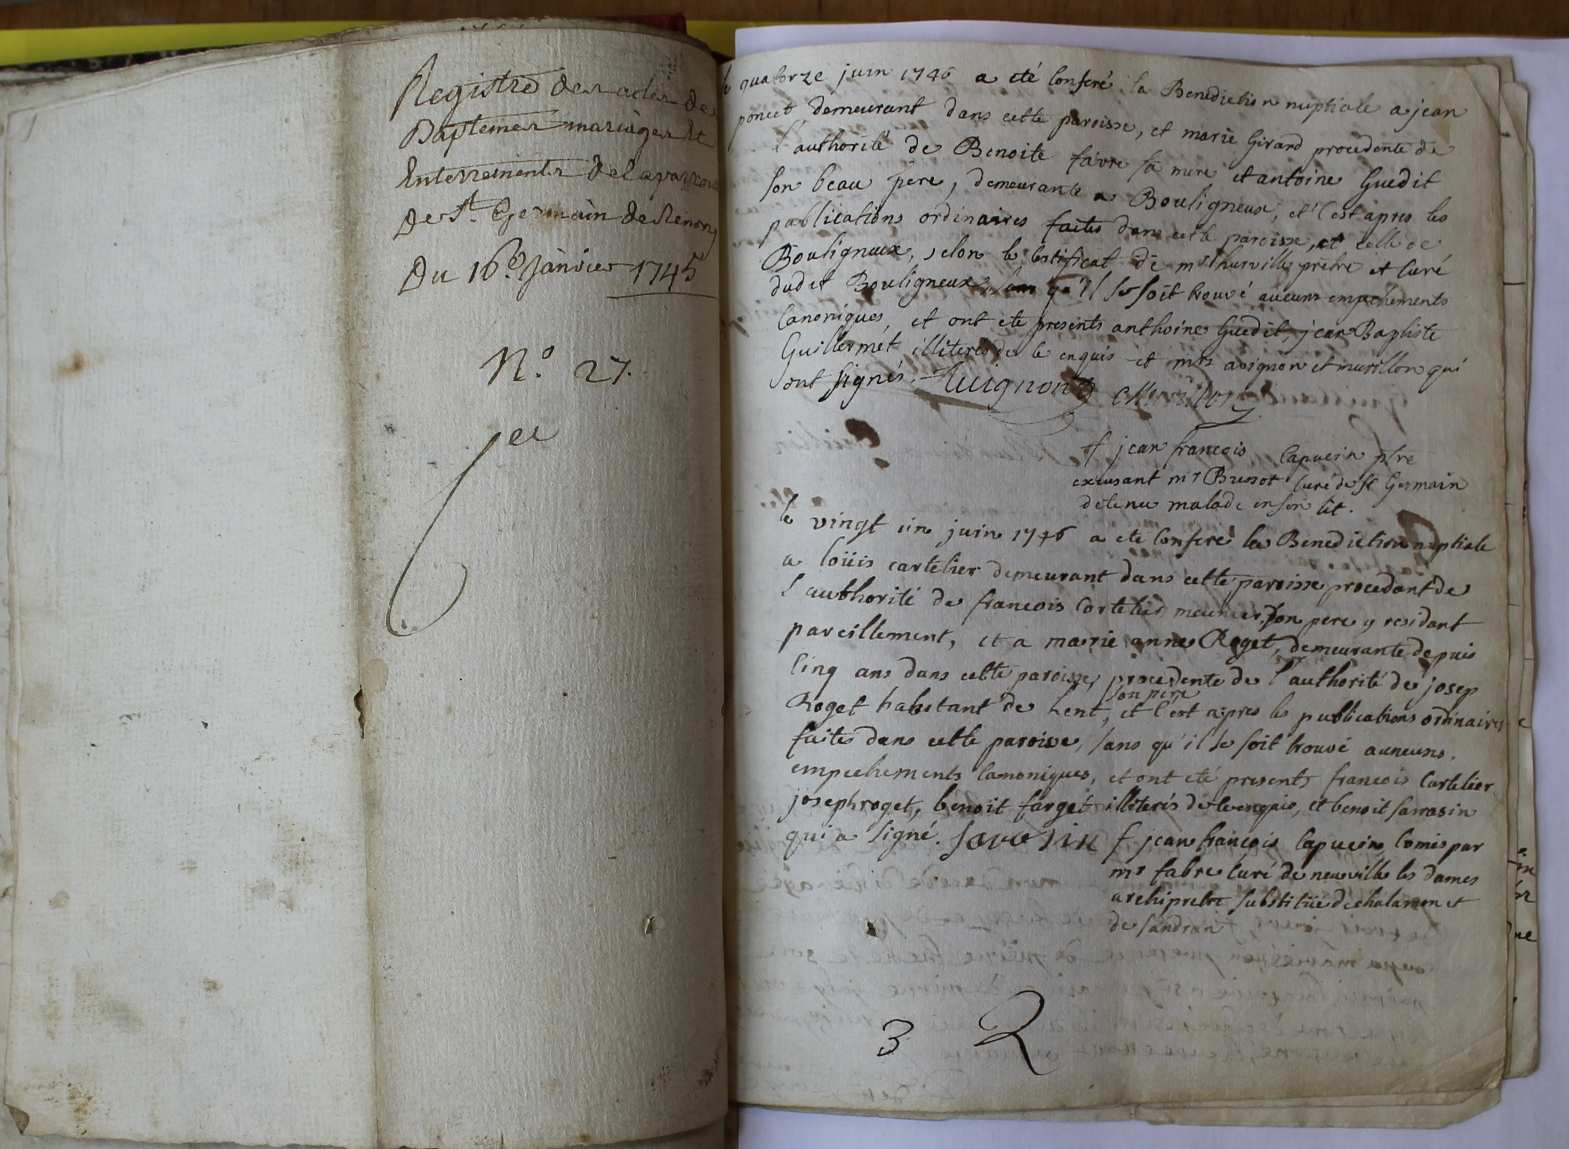 Registre des actes de
Baptemes mariages et
Enterrements de la paroisse
De St. Germain de Renon
Du 16e Janvier 1745
No. 27.
le quatorze juin 1746 a eté conferé la Benediction nuptiale a jean
poncet demeurant dans cette paroisse, et marie Girard procedente de
l'authorité de Benoite favre sa mere et antoine Guedit
son beau pere, demeurante a Bouligneux, et c'est apres les
publications ordinaires faites dans cette paroisse, et celle de
Bouligneux, selon le certificat de mr thurville prêtre et curé
dudet Bouligneux, san qu'il se soit trouvé aucuns empechements
canoniques, et ont eté presents anthoine Guedit, jean Baptiste
Guillermet illiterés de ce enquis et mrs avignon et murillon qui
ont signés. Avignon Murillon
f jean françois capucin ptre
excusant mr Brunot curé de St Germain
detenu malade en son lit.
le vingt un juin 1746 a eté conferé la Benediction nuptiale
a loüis cartelier demeurant dans cette paroisse procedant de
l'authorité de francois Cartelier meunier, son pere y residant
pareillement, et a marie anne Roget, demeurante depuis
cinq ans dans cette paroisse, procedente de l'authorité de josep
Roget habitant de Lent, son pere et c'est apres les publications ordinaires
faites dans cette paroisse, sans qu'il se soit trouvé aucuns
empechements canoniques, et ont eté presents francois Cartelier
joseph roget, benoit farget illiterés de ce enquis, et benoit sarrasin
qui a signé. Sarasin f jean françois capucin comis par
mr fabre curé de neuville les dames
archipretre substitüé de chalamon et
de sandran
3 2